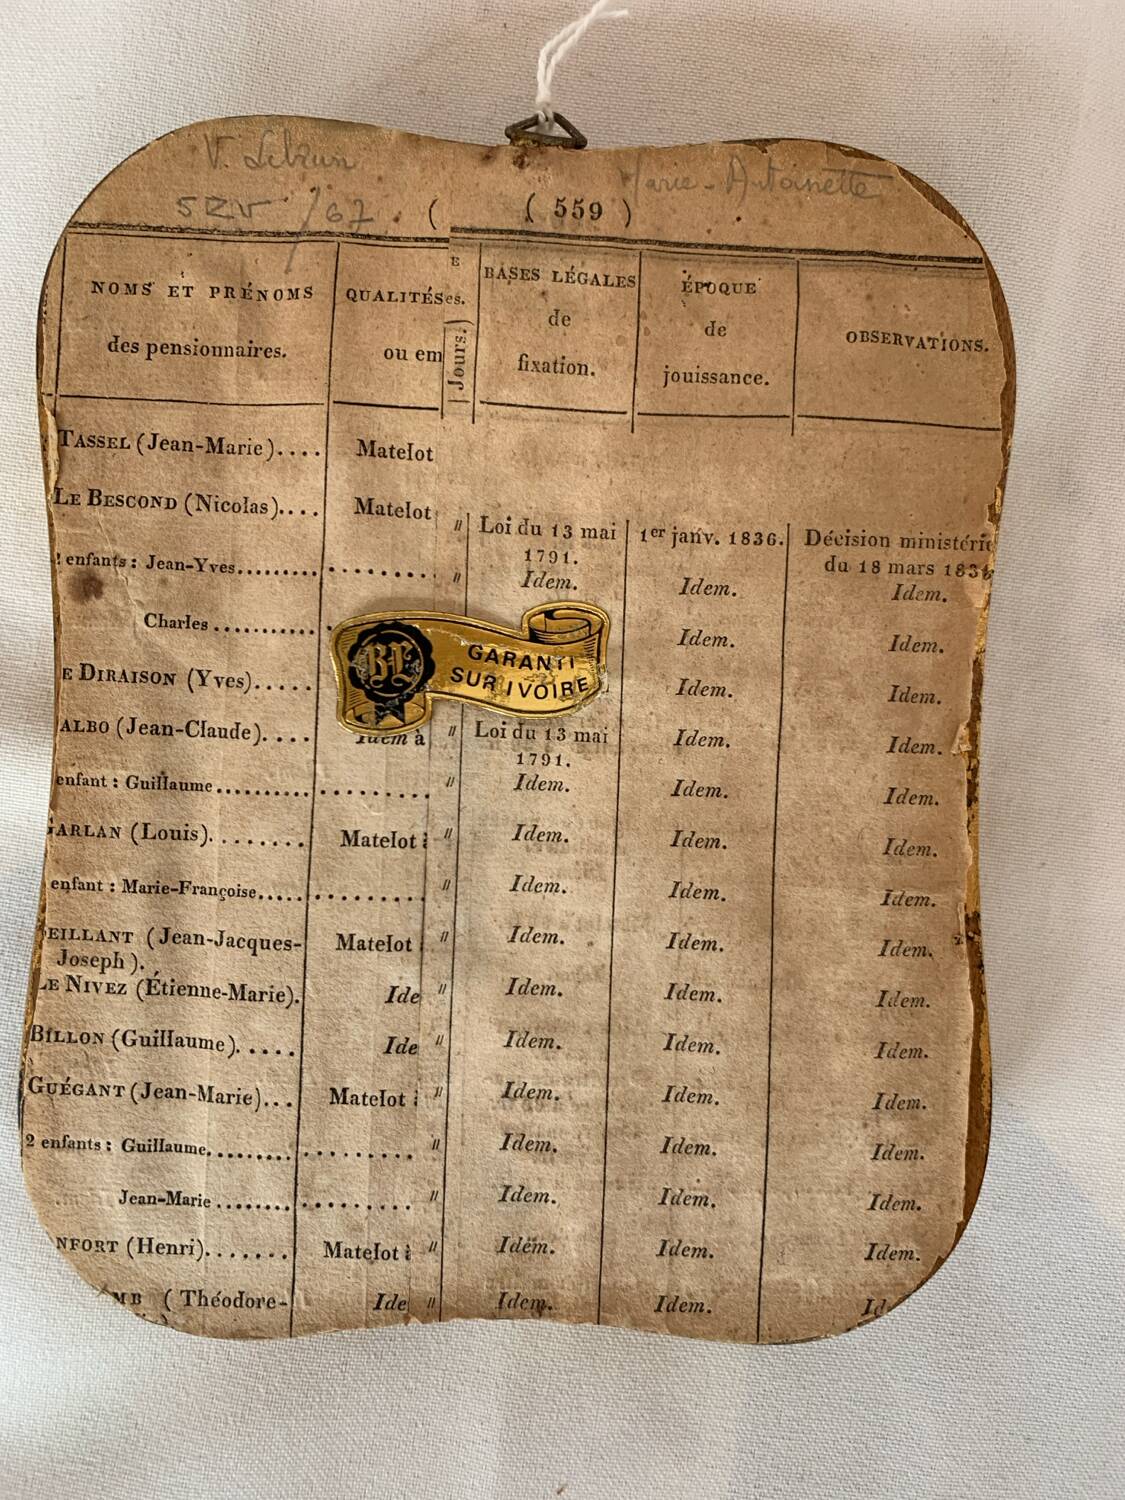 V. Lebrun
Marie-Antoinette
( ( 559 )
NOMS ET PRÉNOMS
des pensionnaires.
QUALITÉS
ou em
E
es.
Jours.
BASES LÉGALES
de
fixation.
ÉPOQUE
de
jouissance.
OBSERVATIONS.
TASSEL (Jean-Marie).... Matelot
LE BESCOND (Nicolas).... Matelot
" Loi du 13 mai 1791. 1er janv. 1836. Décision ministérie
du 18 mars 1836
enfants : Jean-Yves........ ........ " Idem. Idem. Idem.
Charles ........... Idem. Idem.
E DIRAISON (Yves)..... Idem. Idem.
GARANTI
SUR IVOIRE
ALBO (Jean-Claude).... Idem à " Loi du 13 mai 1791. Idem. Idem.
enfant : Guillaume.......... ........ " Idem. Idem. Idem.
ARLAN (Louis)........ Matelot à " Idem. Idem. Idem.
enfant : Marie-Françoise..... ........ " Idem. Idem. Idem.
EILLANT (Jean-Jacques- Matelot " Idem. Idem. Idem.
Joseph).
LE NIVEZ (Étienne-Marie). Ide " Idem. Idem. Idem.
BILLON (Guillaume)..... Ide " Idem. Idem. Idem.
GUÉGANT (Jean-Marie)... Matelot " Idem. Idem. Idem.
2 enfants : Guillaume......... ........ " Idem. Idem. Idem.
Jean-Marie ........ ........ " Idem. Idem. Idem.
NFORT (Henri)....... Matelot à " Idem. Idem. Idem.
MB (Théodore- Ide " Idem. Idem. Id